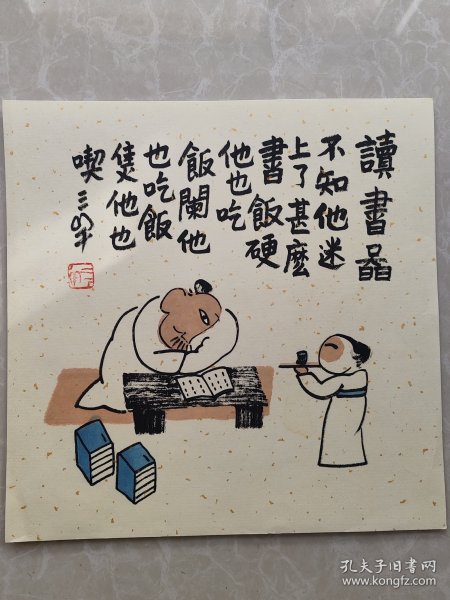 讀書
不知他迷
上了甚麼
書飯硬
他也吃
飯闌他
也吃飯
隻他也
喫
孔夫子旧书网
www.kongfz.com